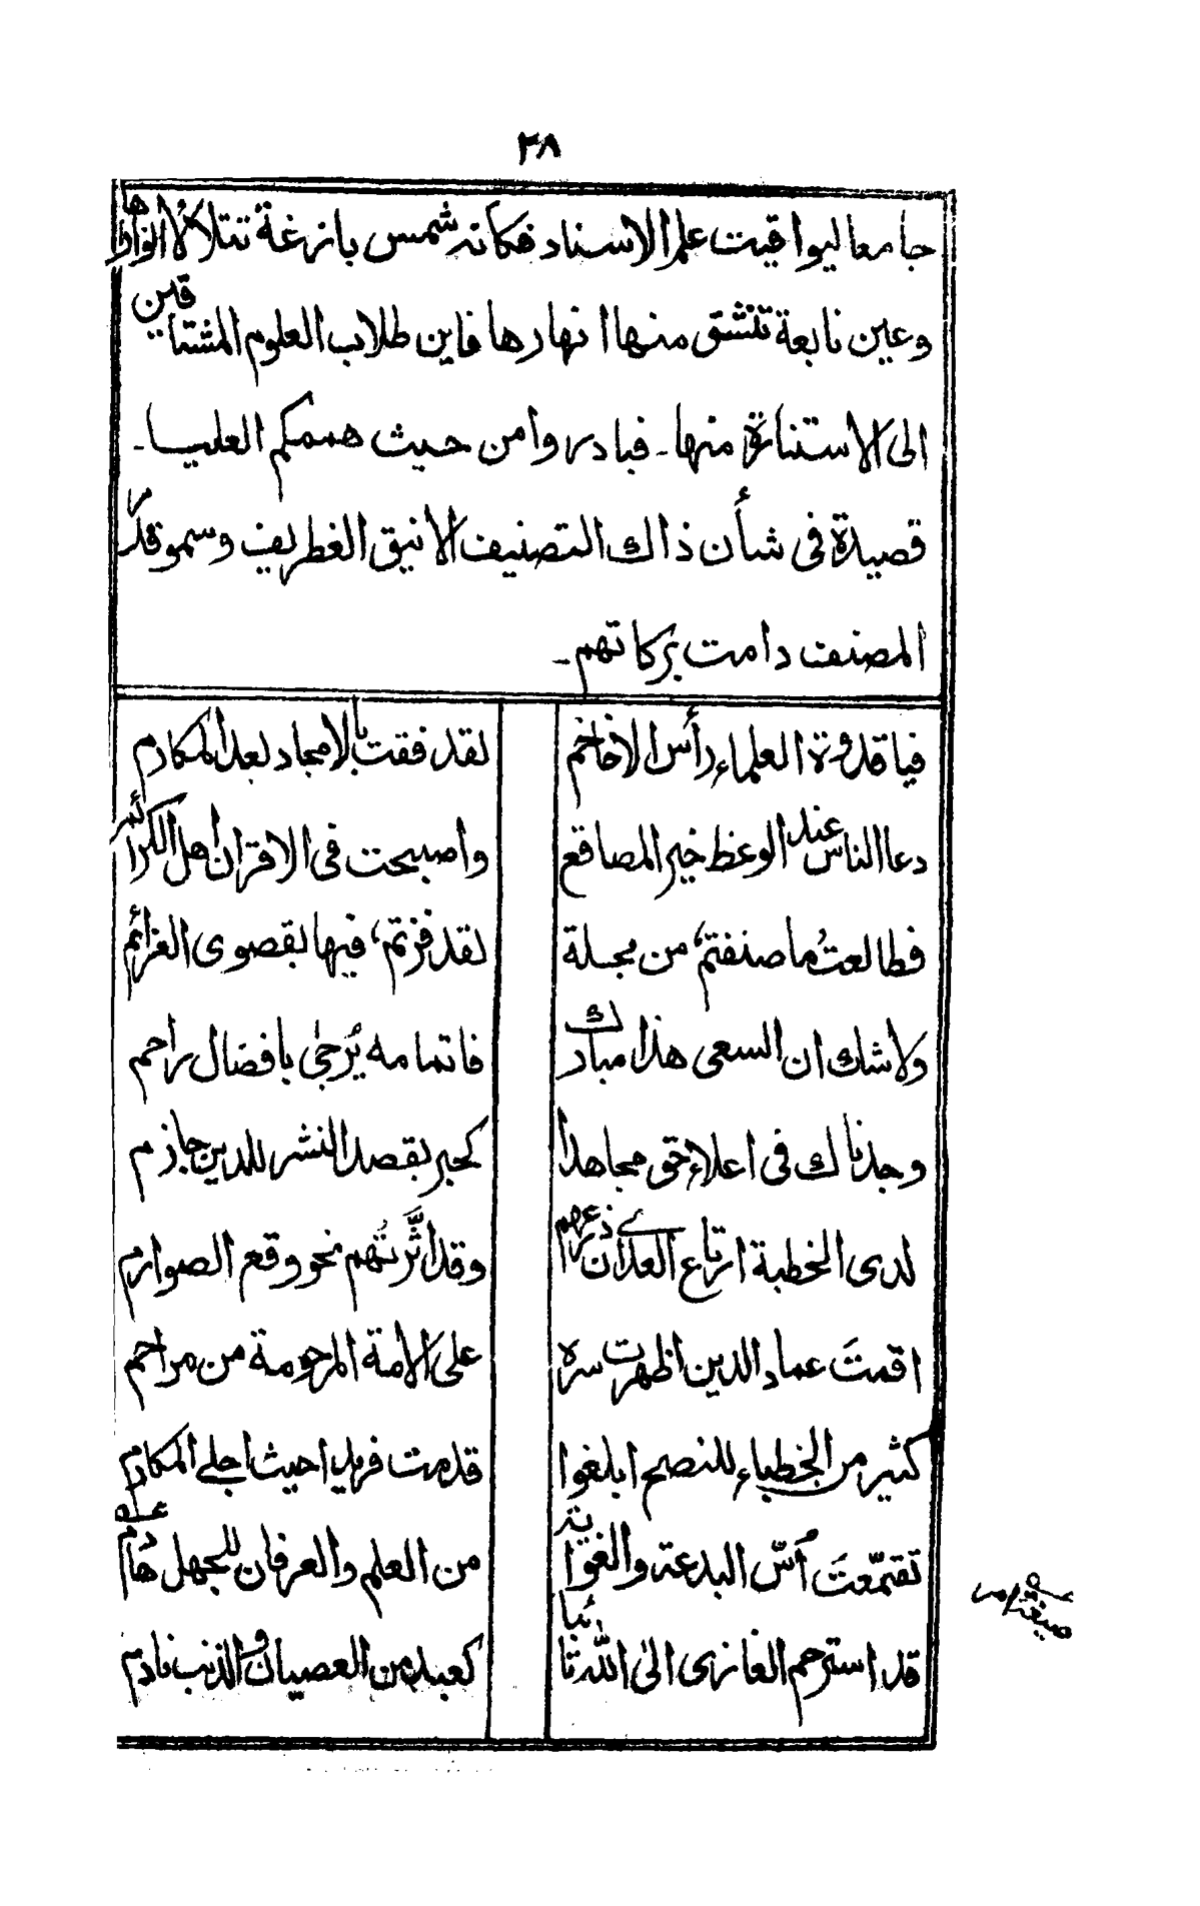 ٢٨
جامعا ليواقيت علم الاسناد فكانه شمس بازغة تتلألأ انوارها
وعين نابعة تنشق منها انهارها فاين طلاب العلوم المشتاقين
الى الاستنارة منها۔ فبادروا من حيث هممكم العليا۔
قصيدة فى شأن ذاك التصنيف الانيق الغطريف وسمو قدر
المصنف دامت بركاتهم۔
فيا قدوة العلماء رأس الافاخم لقد فقت بالامجاد بعد المكارم
دعا الناس عند الوعظ خير المصاقع واصبحت فى الاقران اهل الكرائم
فطالعتُ ما صنفتم، من مجلة لقد فزتم، فيها بقصوى العزائم
ولا شك ان السعى هذا مبارك فاتمامه يُرجىٰ بافضال راحم
وجدناك فى اعلاء حق مجاهدا كحبر بقصد النشر للدين جازم
لدى الخطبة ارتاع العدٰى ان ذعرتهم وقد اثَّرتُهم نحو وقع الصوارم
اقمتَ عماد الدين اظهرت سره على الامة المرحومة من مراحم
كثير من الخطباء للنصح ابلغوا قدمت فريدا حيث اجلے المكارم
تقمّعتَ اُسّ البدعة والغواية من العلم والعرفان للجهل هادم
قد استرحم الغازى الى الله تائبا كعبد من العصيان والذنب نادم
صيغة امر